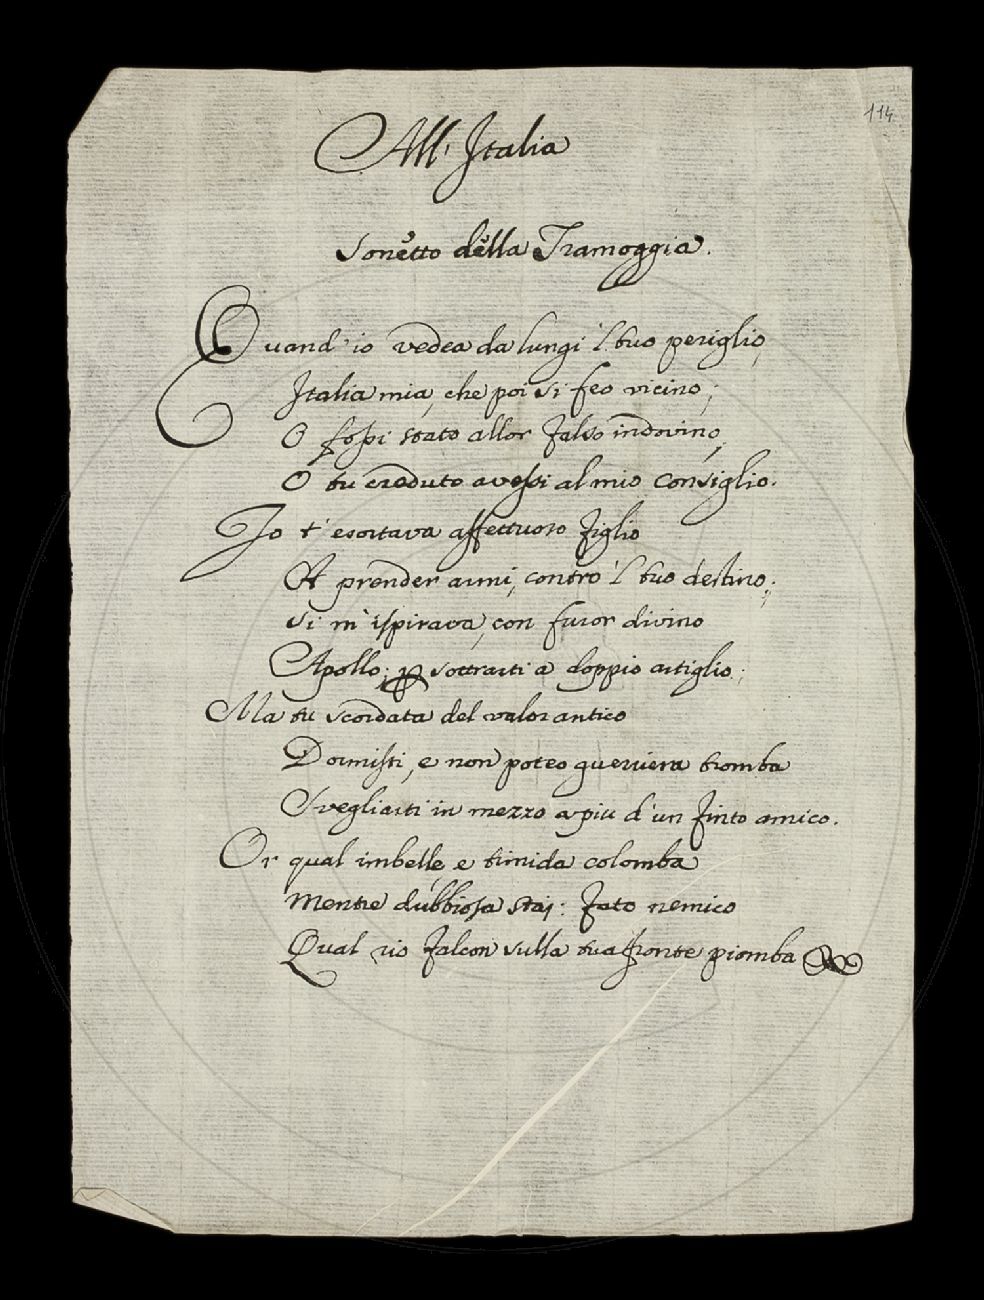 114
All' Italia
Sonetto della Tramoggia.
Quand' io vedea da lungi 'l tuo periglio,
Italia mia, che poi si feo vicino;
O fossi stato allor falso indovino,
O tu creduto avessi al mio consiglio.
Io t' esortava affettuoso figlio
A prender armi, contro 'l tuo destino;
Si m' ispirava, con furor divino
Apollo; per sottrarti a doppio artiglio;
Ma tu scordata del valor antico
Dormisti, e non poteo guerriera tromba
Svegliarti in mezzo a piu d' un finto amico.
Or qual imbelle, e timida colomba
Mentre dubbiosa stai: fato nemico
Qual rio falcon sulla tua fronte piomba